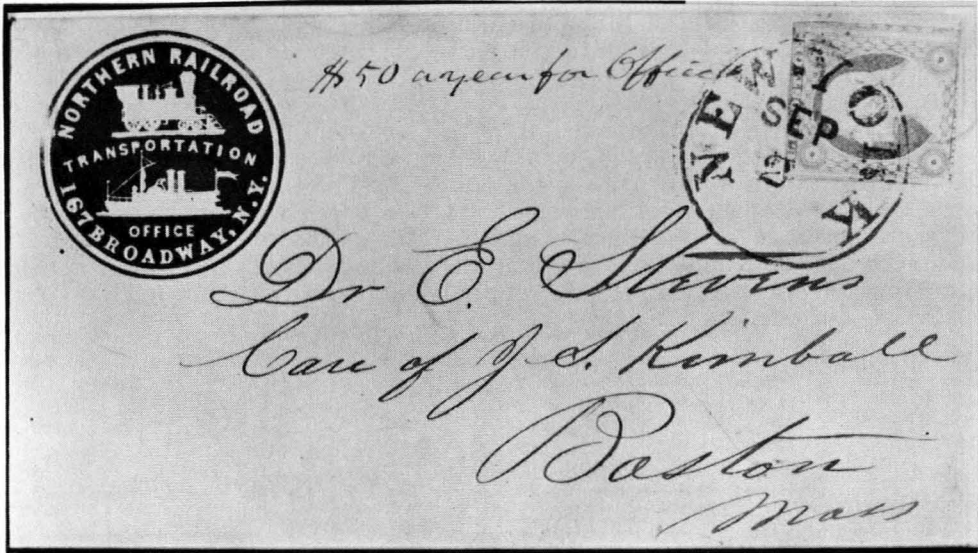 NORTHERN RAILROAD
TRANSPORTATION
OFFICE
167 BROADWAY, N.Y.
$50 a year for Office
NEW YORK
SEP
Dr E. Stevens
Care of J. S. Kimball
Boston
Mass